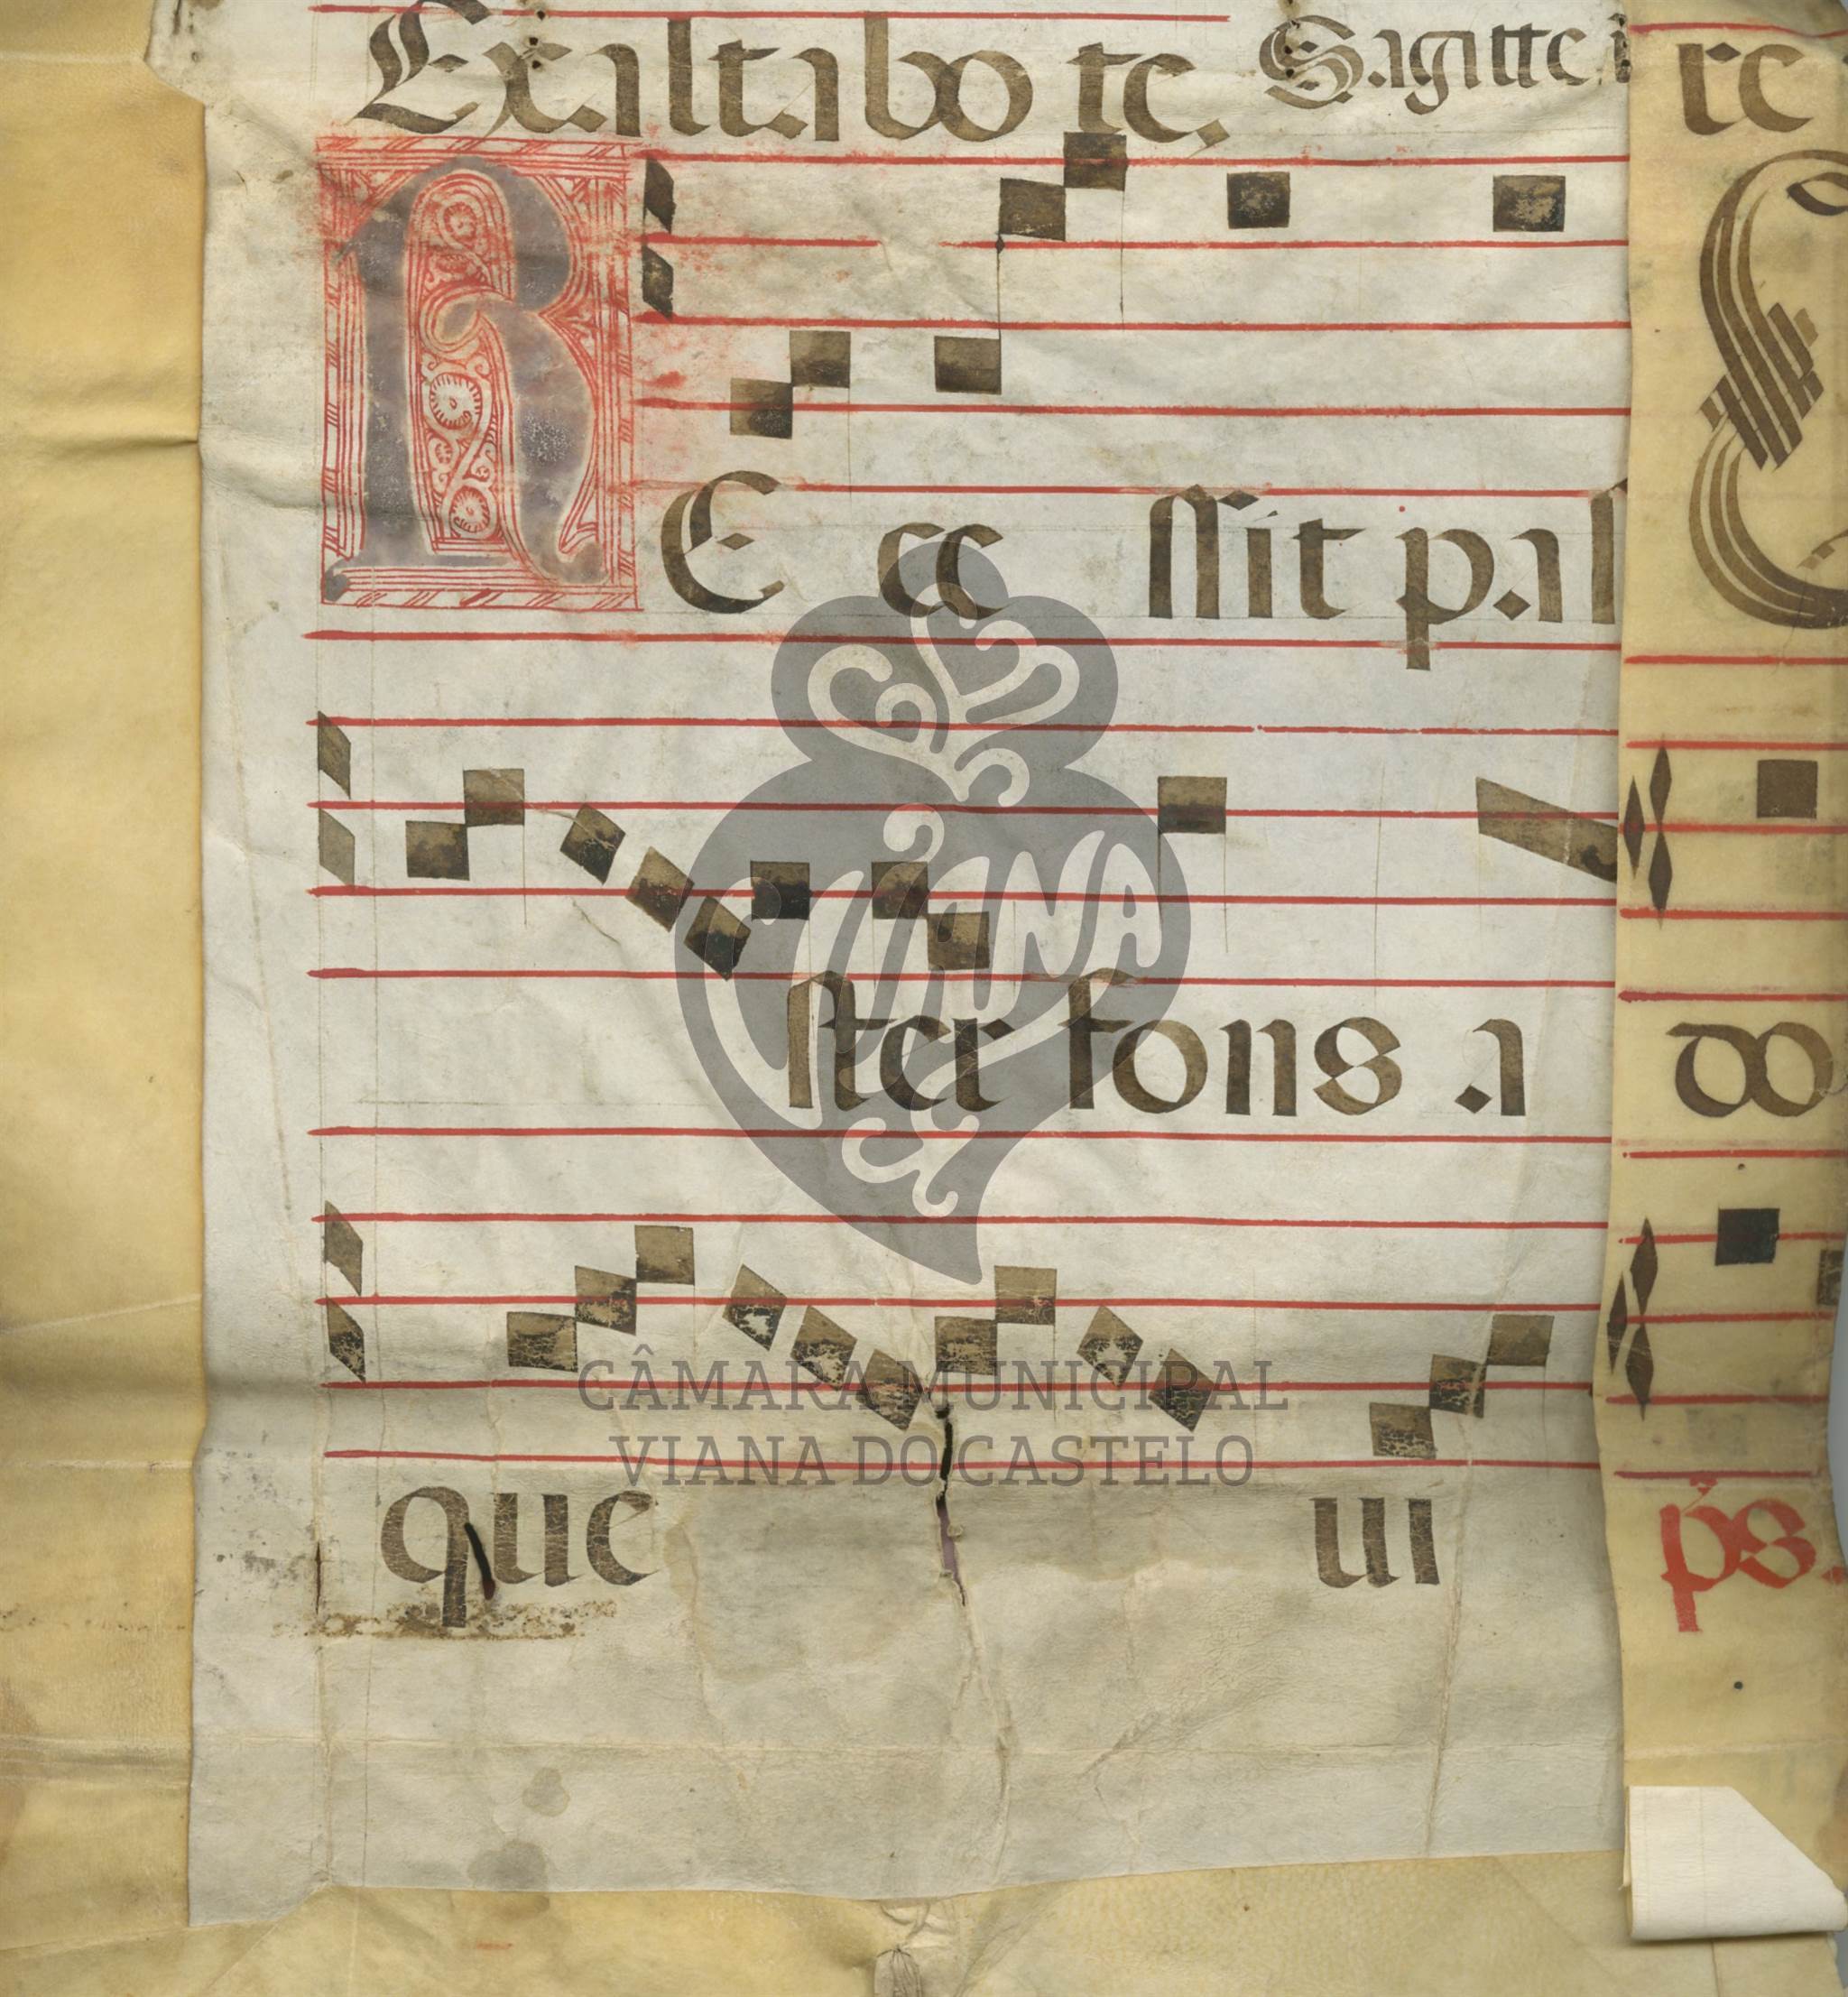 Exaltabo te. Sagitte i
RE ce ssit pas
ster fons a
que ui
re
do
ps.
VIANA
CÂMARA MUNICIPAL
VIANA DO CASTELO